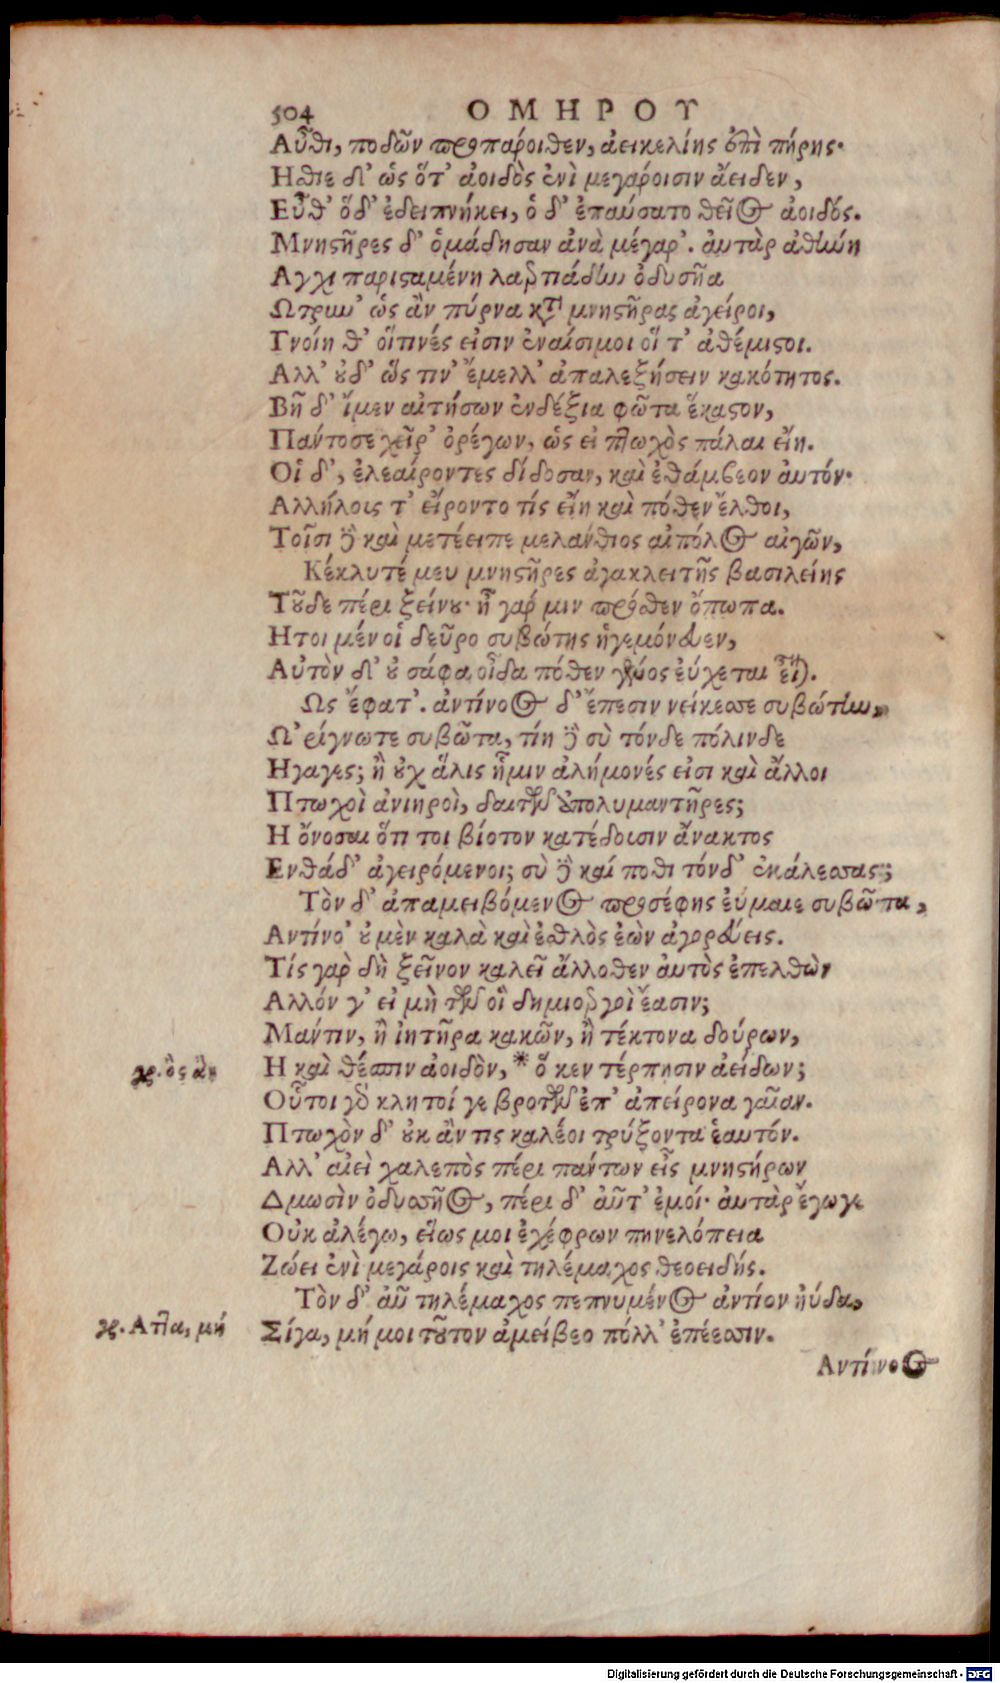 504 ΟΜΗΡΟΥ
Αὖθι, ποδῶν προπάροιθεν, ἀεικελίης ἐπὶ πήρης·
Ησθιε δ' ὡς ὅτ' ἀοιδὸς ἐνὶ μεγάροισιν ἄειδεν,
Εὖθ' ὅδ' ἐδειπνήκει, ὁ δ' ἐπαύσατο θεῖος ἀοιδός.
Μνηστῆρες δ' ὁμάδησαν ἀνὰ μέγαρ'. αὐτὰρ ἀθήνη
Αγχι παρισταμένη λαερτιάδην ὀδυσῆα
Ωτρυν' ὡς ἂν πύρνα κατὰ μνηστῆρας ἀγείροι,
Γνοίη θ' οἵτινές εἰσιν ἐναίσιμοι οἵ τ' ἀθέμιστοι.
Αλλ' οὐδ' ὥς τιν' ἔμελλ' ἀπαλεξήσειν κακότητος.
Βῆ δ' ἴμεν αἰτήσων ἐνδέξια φῶτα ἕκαστον,
Πάντοσε χεῖρ' ὀρέγων, ὡς εἰ πτωχὸς πάλαι εἴη.
Οἱ δ', ἐλεαίροντες δίδοσαν, καὶ ἐθάμβεον αὐτόν·
Αλλήλοις τ' εἴροντο τίς εἴη καὶ πόθεν ἔλθοι,
Τοῖσι δὲ καὶ μετέειπε μελάνθιος αἰπόλος αἰγῶν,
Κέκλυτέ μευ μνηστῆρες ἀγακλειτῆς βασιλείης
Τοῦδε πέρι ξείνου· ἦ γάρ μιν πρόσθεν ὄπωπα.
Ητοι μέν οἱ δεῦρο συβώτης ἡγεμόνευεν,
Αὐτὸν δ' οὐ σάφα οἶδα πόθεν γένος εὔχεται εἶναι.
Ως ἔφατ'. ἀντίνοος δ' ἔπεσιν νείκεσσε συβώτην,
Ω' ρίγνωτε συβῶτα, τίη δὲ σὺ τόνδε πόλινδε
Ηγαγες; ἢ οὐχ ἅλις ἧμιν ἀλήμονές εἰσι καὶ ἄλλοι
Πτωχοὶ ἀνιηροὶ, δαιτῶν ἀπολυμαντῆρες;
Η ὄνοσαι ὅτι τοι βίοτον κατέδουσιν ἄνακτος
Ενθάδ' ἀγειρόμενοι; σὺ δὲ καί ποθι τόνδ' ἐκάλεσσας;
Τὸν δ' ἀπαμειβόμενος προσέφης εὔμαιε συβῶτα,
Αντίνο' οὐ μὲν καλὰ καὶ ἐσθλὸς ἐὼν ἀγορεύεις.
Τίς γαρ δὴ ξεῖνον καλεῖ ἄλλοθεν αὐτὸς ἐπελθὼν
Αλλόν γ' εἰ μὴ τῶν οἳ δημιοεργοὶ ἔασιν;
Μάντιν, ἢ ἰητῆρα κακῶν, ἢ τέκτονα δούρων,
γρ. ὃς ἂν Η καὶ θέσπιν ἀοιδὸν, * ὅ κεν τέρπησιν ἀείδων;
Οὗτοι γὰρ κλητοί γε βροτῶν ἐπ' ἀπείρονα γαῖαν.
Πτωχὸν δ' οὐκ ἄν τις καλέοι τρύξοντα ἑαυτόν.
Αλλ' αἰεὶ χαλεπὸς πέρι πάντων εἶς μνηστήρων
Δμωσὶν ὀδυσσῆος, πέρι δ' αὖτ' ἐμοί· αὐτὰρ ἔγωγε
Οὐκ ἀλέγω, εἵως μοι ἐχέφρων πηνελόπεια
Ζώει ἐνὶ μεγάροις καὶ τηλέμαχος θεοειδής.
Τὸν δ' αὖ τηλέμαχος πεπνυμένος ἀντίον ηὔδα,
γρ. Αττα, μή Σίγα, μή μοι τοῦτον ἀμείβεο πόλλ' ἐπέεσσιν.
Αντίνοος
Digitalisierung gefördert durch die Deutsche Forschungsgemeinschaft - DFG